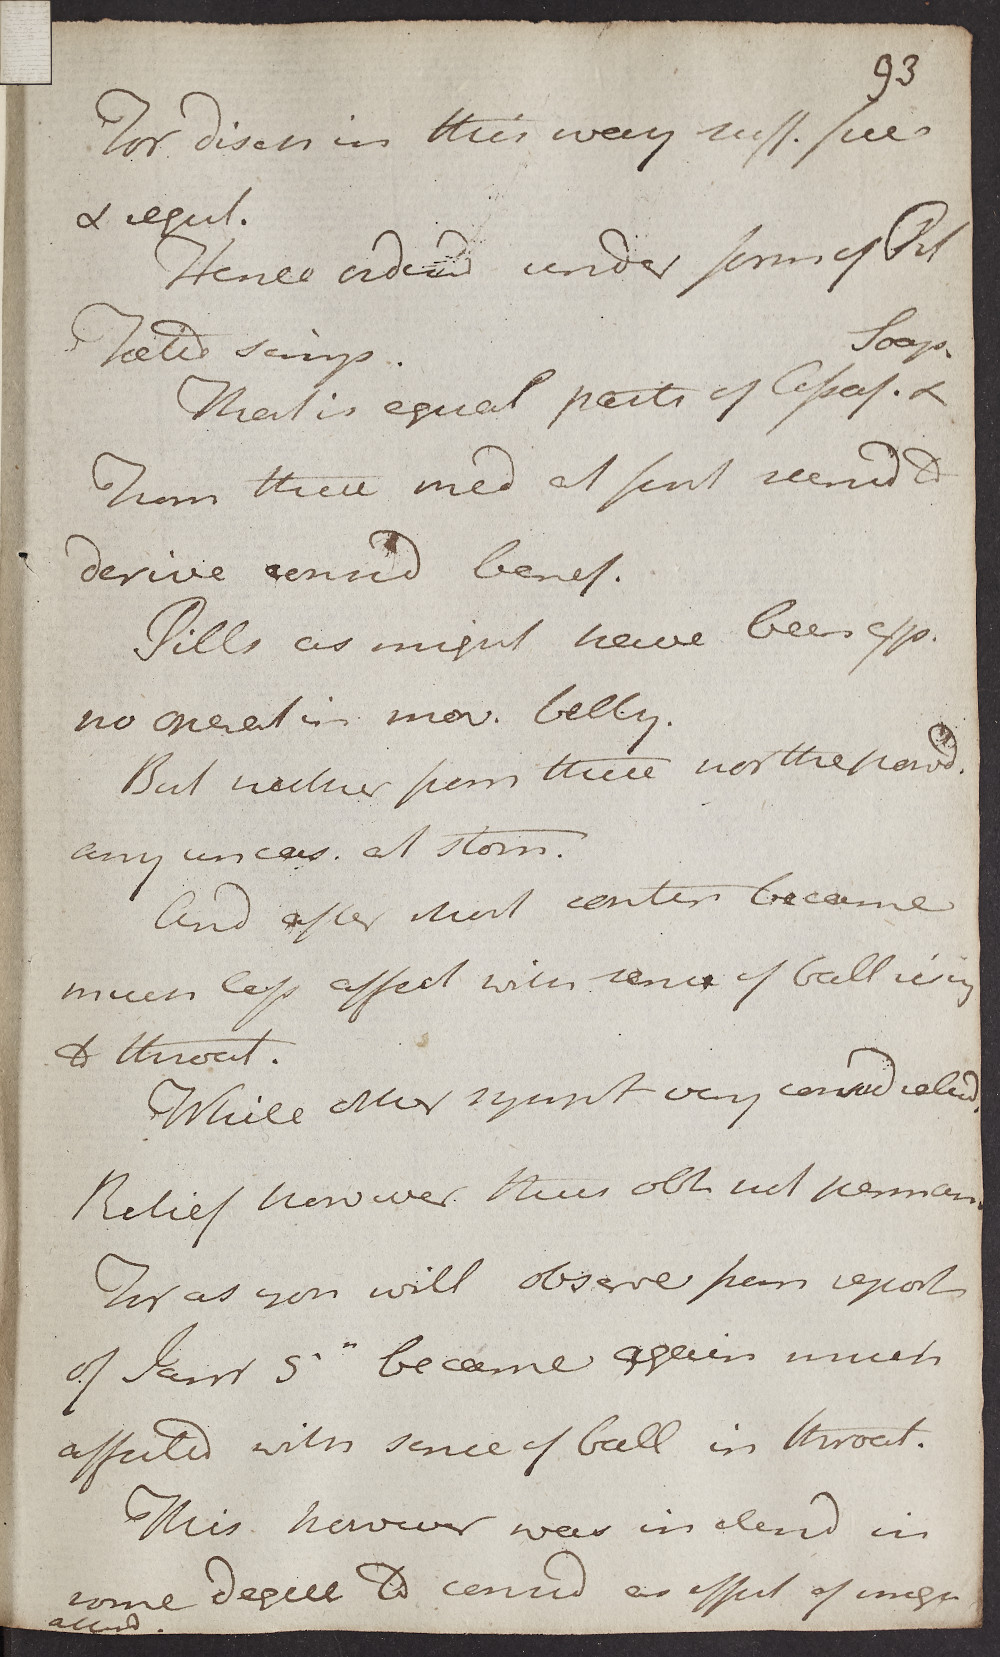 93
For disch in this way suff. free
& regul.
Hence ordered under form of Pil
Fœtid simp.
Soap.
That is equal parts of Assaf. &
From these med at first seemd to
derive considd benef.
Pills as might have been exp.
no operat in mov. belly.
But neither from these nor the powd.
any uneas. at stom.
And after short contin became
much less affect with sense of ball risig
to throat.
While other sympt very considd relievd.
Relief however thus obt not perman.
For as you will observe from report
of Janr 5th became again much
affected with sence of ball in throat.
This however was in
some degree to considd as effect of